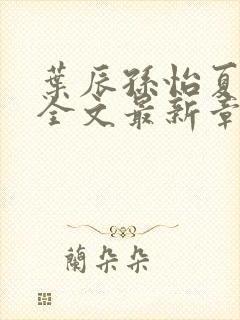 葉辰孫怡夏
全文最新章
蘭朵朵